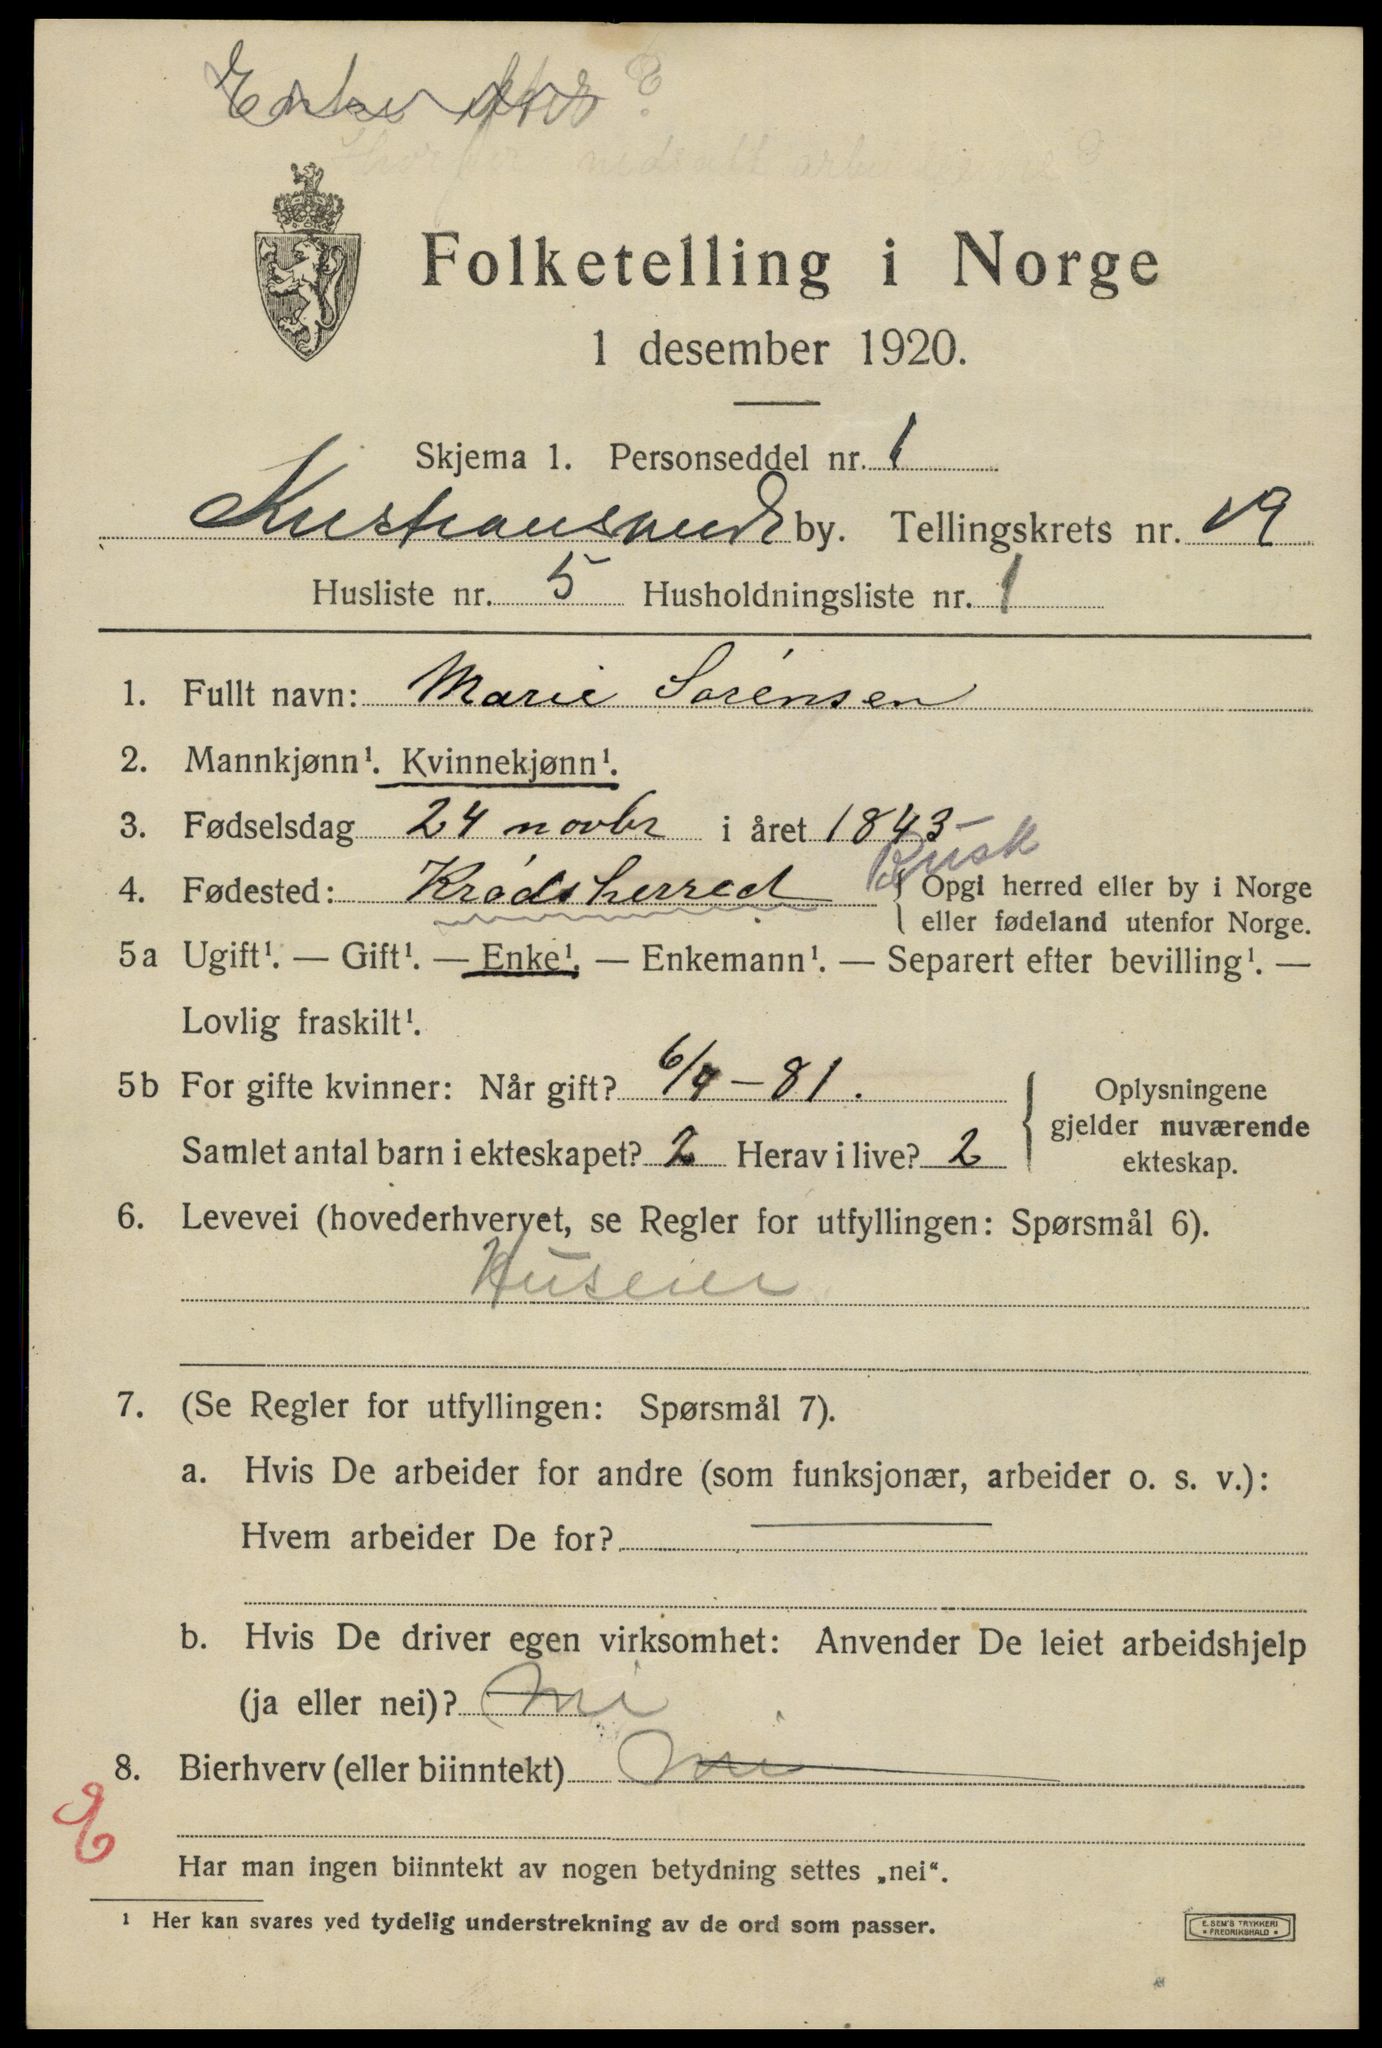 Enke efter?
Folketelling i Norge
1 desember 1920.
Skjema 1. Personseddel nr. 1
Kristiansund by. Tellingskrets nr. 19
Husliste nr. 5 Husholdningsliste nr. 1
1. Fullt navn: Marie Sørensen
2. Mannkjønn¹. Kvinnekjønn¹.
3. Fødselsdag 24 novbr i året 1843
Busk
4. Fødested: Krødsherred { Opgi herred eller by i Norge
eller fødeland utenfor Norge.
5a Ugift¹. — Gift¹. — Enke¹. — Enkemann¹. — Separert efter bevilling¹. —
Lovlig fraskilt¹.
5b For gifte kvinner: Når gift? 6/9 – 81. { Oplysningene
gjelder nuværende
Samlet antal barn i ekteskapet? 2 Herav i live? 2 ekteskap.
6. Levevei (hovederhvervet, se Regler for utfyllingen: Spørsmål 6).
Huseier
7. (Se Regler for utfyllingen: Spørsmål 7).
a. Hvis De arbeider for andre (som funksjonær, arbeider o. s. v.):
Hvem arbeider De for?
b. Hvis De driver egen virksomhet: Anvender De leiet arbeidshjelp
(ja eller nei)? nei
8. Bierhverv (eller biinntekt) nei
E
Har man ingen biinntekt av nogen betydning settes „nei“.
¹ Her kan svares ved tydelig understrekning av de ord som passer.
E. SEM'S TRYKKERI
* FREDRIKSHALD *